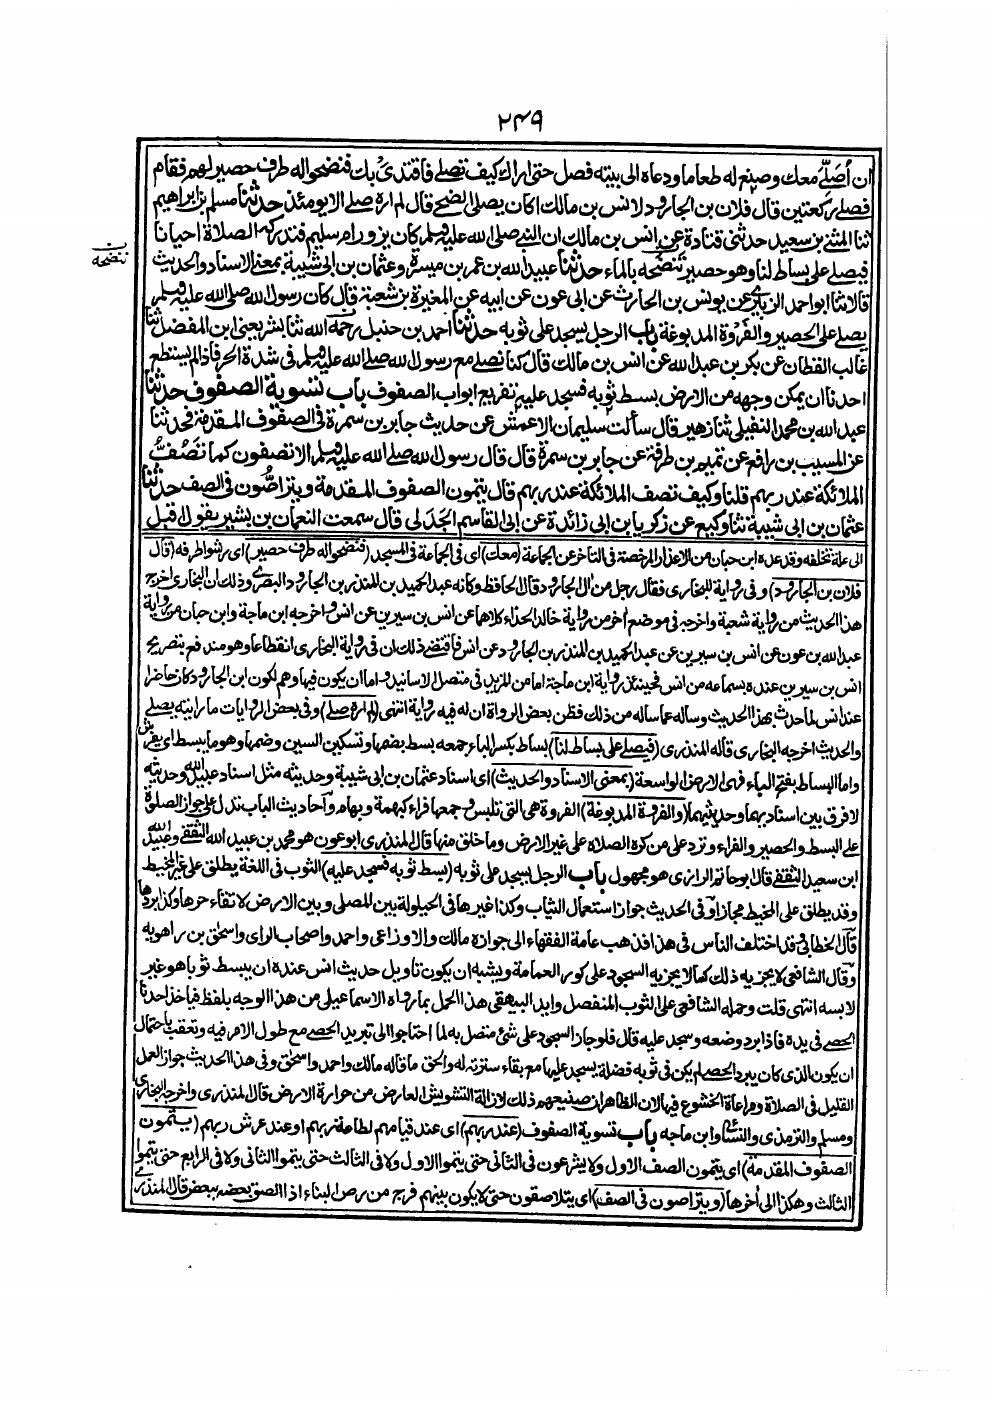 ٢٤٩
ان أصلّى معك وصنع له طعاما ودعاه الى بيته فصل حتى اراك كيف تصلى فاقتدى بك فنضحوا له طرف حصير لهم فقام
فصلى ركعتين قال فلان بن الجارود لانس بن مالك اكان يصلى الضحى قال لم اره صلى الا يومئذ حدثنا مسلم بن ابراهيم
ثنا المثنى بن سعيد حدثنى قتادة عن انس بن مالك ان النبى صلى الله عليه وسلم كان يزور ام سليم فتدركه الصلاة احيانا
فيصلى على بساط لنا وهو حصير تنضحه بالماء حدثنا عبيد الله بن عمر بن ميسرة وعثمان بن ابى شيبة بمعنى الاسناد والحديث
ننضحه
قالا ثنا ابو احمد الزبيرى عن يونس بن الحارث عن ابى عون عن ابيه عن المغيرة بن شعبة قال كان رسول الله صلى الله عليه وسلم
يصلى على الحصير والفروة المدبوغة باب الرجل يسجد على ثوبه حدثنا احمد بن حنبل رحمة الله ثنا بشر يعنى ابن المفضل ثنا
غالب القطان عن بكر بن عبد الله عن انس بن مالك قال كنا نصلى مع رسول الله صلى الله عليه وسلم فى شدة الحر فاذا لم يستطع
احدنا ان يمكن وجهه من الارض بسط ثوبه فسجد عليه تفريع ابواب الصفوف باب تسوية الصفوف حدثنا
عبد الله بن محمد النفيلى ثنا زهير قال سألت سليمان الاعمش عن حديث جابر بن سمرة فى الصفوف المقدمة فحدثنا
عن المسيب بن رافع عن تميم بن طرفة عن جابر بن سمرة قال قال رسول الله صلى الله عليه وسلم الا تصفون كما تصف
الملائكة عند ربهم قلنا وكيف تصف الملائكة عند ربهم قال يتمون الصفوف المقدمة ويتراصّون فى الصف حدثنا
عثمان بن ابى شيبة ثنا وكيع عن زكريا بن ابى زائدة عن ابى القاسم الجدلى قال سمعت النعمان بن بشير يقول اقبل
الى علة تخلفه وقد عده ابن حبان من الاعذار المرخصة فى التاخر عن الجماعة (معك) اى فى الجماعة فى المسجد (فنضحوا له طرف حصير) اى رشوا طرفه (قال
فلان بن الجارود) وفى رواية للبخارى فقال رجل من ال الجارود قال الحافظ وكانه عبد الحميد بن المنذر بن الجارود البصرى وذلك ان البخارى اخرج
هذا الحديث من رواية شعبة واخرجه فى موضع اخر من رواية خالد الحذاء كلاهما عن انس بن سيرين عن انس واخرجه ابن ماجة وابن حبان من رواية
عبد الله بن عون عن انس بن سيرين عن عبد الحميد بن المنذر بن الجارود عن انس فاقتضى ذلك ان فى رواية البخارى انقطاعا وهو مندفع بتصريح
انس بن سيرين عنده بسماعه من انس فحينئذ رواية ابن ماجة اما من المزيد فى متصل الاسانيد واما ان يكون فيها وهم لكون ابن الجارود كان حاضرا
عند انس لما حدث بهذا الحديث وساله عما ساله من ذلك فظن بعض الرواة ان له فيه رواية انتهى (لم اره صلى) وفى بعض الروايات ما رايته يصلى
والحديث اخرجه البخارى قاله المنذرى (فيصلى على بساط لنا) بساط بكسر الباء جمعه بسط بضمها وتسكين السين وضمها وهو ما يبسط اى يفرش
واما البساط بفتح الباء فهى الارض الواسعة (بمعنى الاسناد والحديث) اى اسناد عثمان بن ابى شيبة وحديثه مثل اسناد عبيد الله وحديثه
لا فرق بين اسناديهما وحديثيهما (والفروة المدبوغة) الفروة هى التى تلبس وجمعها فراء كبهمة وبهام واحاديث الباب تدل على جواز الصلوة
على البسط والحصير والفراء وترد على من كره الصلاة على غير الارض وما خلق منها قال المنذرى ابو عون هو محمد بن عبيد الله الثقفى وعبيد الله
ابن سعيد الثقفى قال ابو حاتم الرازى هو مجهول باب الرجل يسجد على ثوبه (بسط ثوبه فسجد عليه) الثوب فى اللغة يطلق على غير المخيط
وقد يطلق على المخيط مجازا وفى الحديث جواز استعمال الثياب وكذا غيرها فى الحيلولة بين المصلى وبين الارض لاتقاء حرها وكذا بردها
قال الخطابى قد اختلف الناس فى هذا فذهب عامة الفقهاء الى جوازه مالك والاوزاعى واحمد واصحاب الراى واسحق بن راهويه
وقال الشافعى لا يجزيه ذلك كما لا يجزيه السجود على كور العمامة ويشبه ان يكون تاويل حديث انس عنده ان يبسط ثوبا هو غير
لابسه انتهى قلت وحمله الشافعى على الثوب المنفصل وايد البيهقى هذا الحمل بما رواه الاسماعيلى من هذا الوجه بلفظ فياخذ احدنا
الحصى فى يده فاذا برد وضعه وسجد عليه قال فلو جاز السجود على شئ متصل به لما احتاجوا الى تبريد الحصى مع طول الامر فيه وتعقب باحتمال
ان يكون الذى كان يبرد الحصى لم يكن فى ثوبه فضلة يسجد عليها مع بقاء سترته له والحق ما قاله مالك واحمد واسحق وفى هذا الحديث جواز العمل
القليل فى الصلاة ومراعاة الخشوع فيها لان الظاهر ان صنيعهم ذلك لازالة التشويش العارض من حرارة الارض قال المنذرى واخرجه البخارى
ومسلم والترمذى والنسائى وابن ماجه باب تسوية الصفوف (عند ربهم) اى عند قيامهم لطاعة ربهم او عند عرش ربهم (يتمون
الصفوف المقدمة) اى يتمون الصف الاول ولا يشرعون فى الثانى حتى يتموا الاول ولا فى الثالث حتى يتموا الثانى ولا فى الرابع حتى يتموا
الثالث وهكذا الى أخرها (ويتراصون فى الصف) اى يتلاصقون حتى لا يكون بينهم فرج من رص البناء اذا الصق بعضه ببعض قال المنذرى